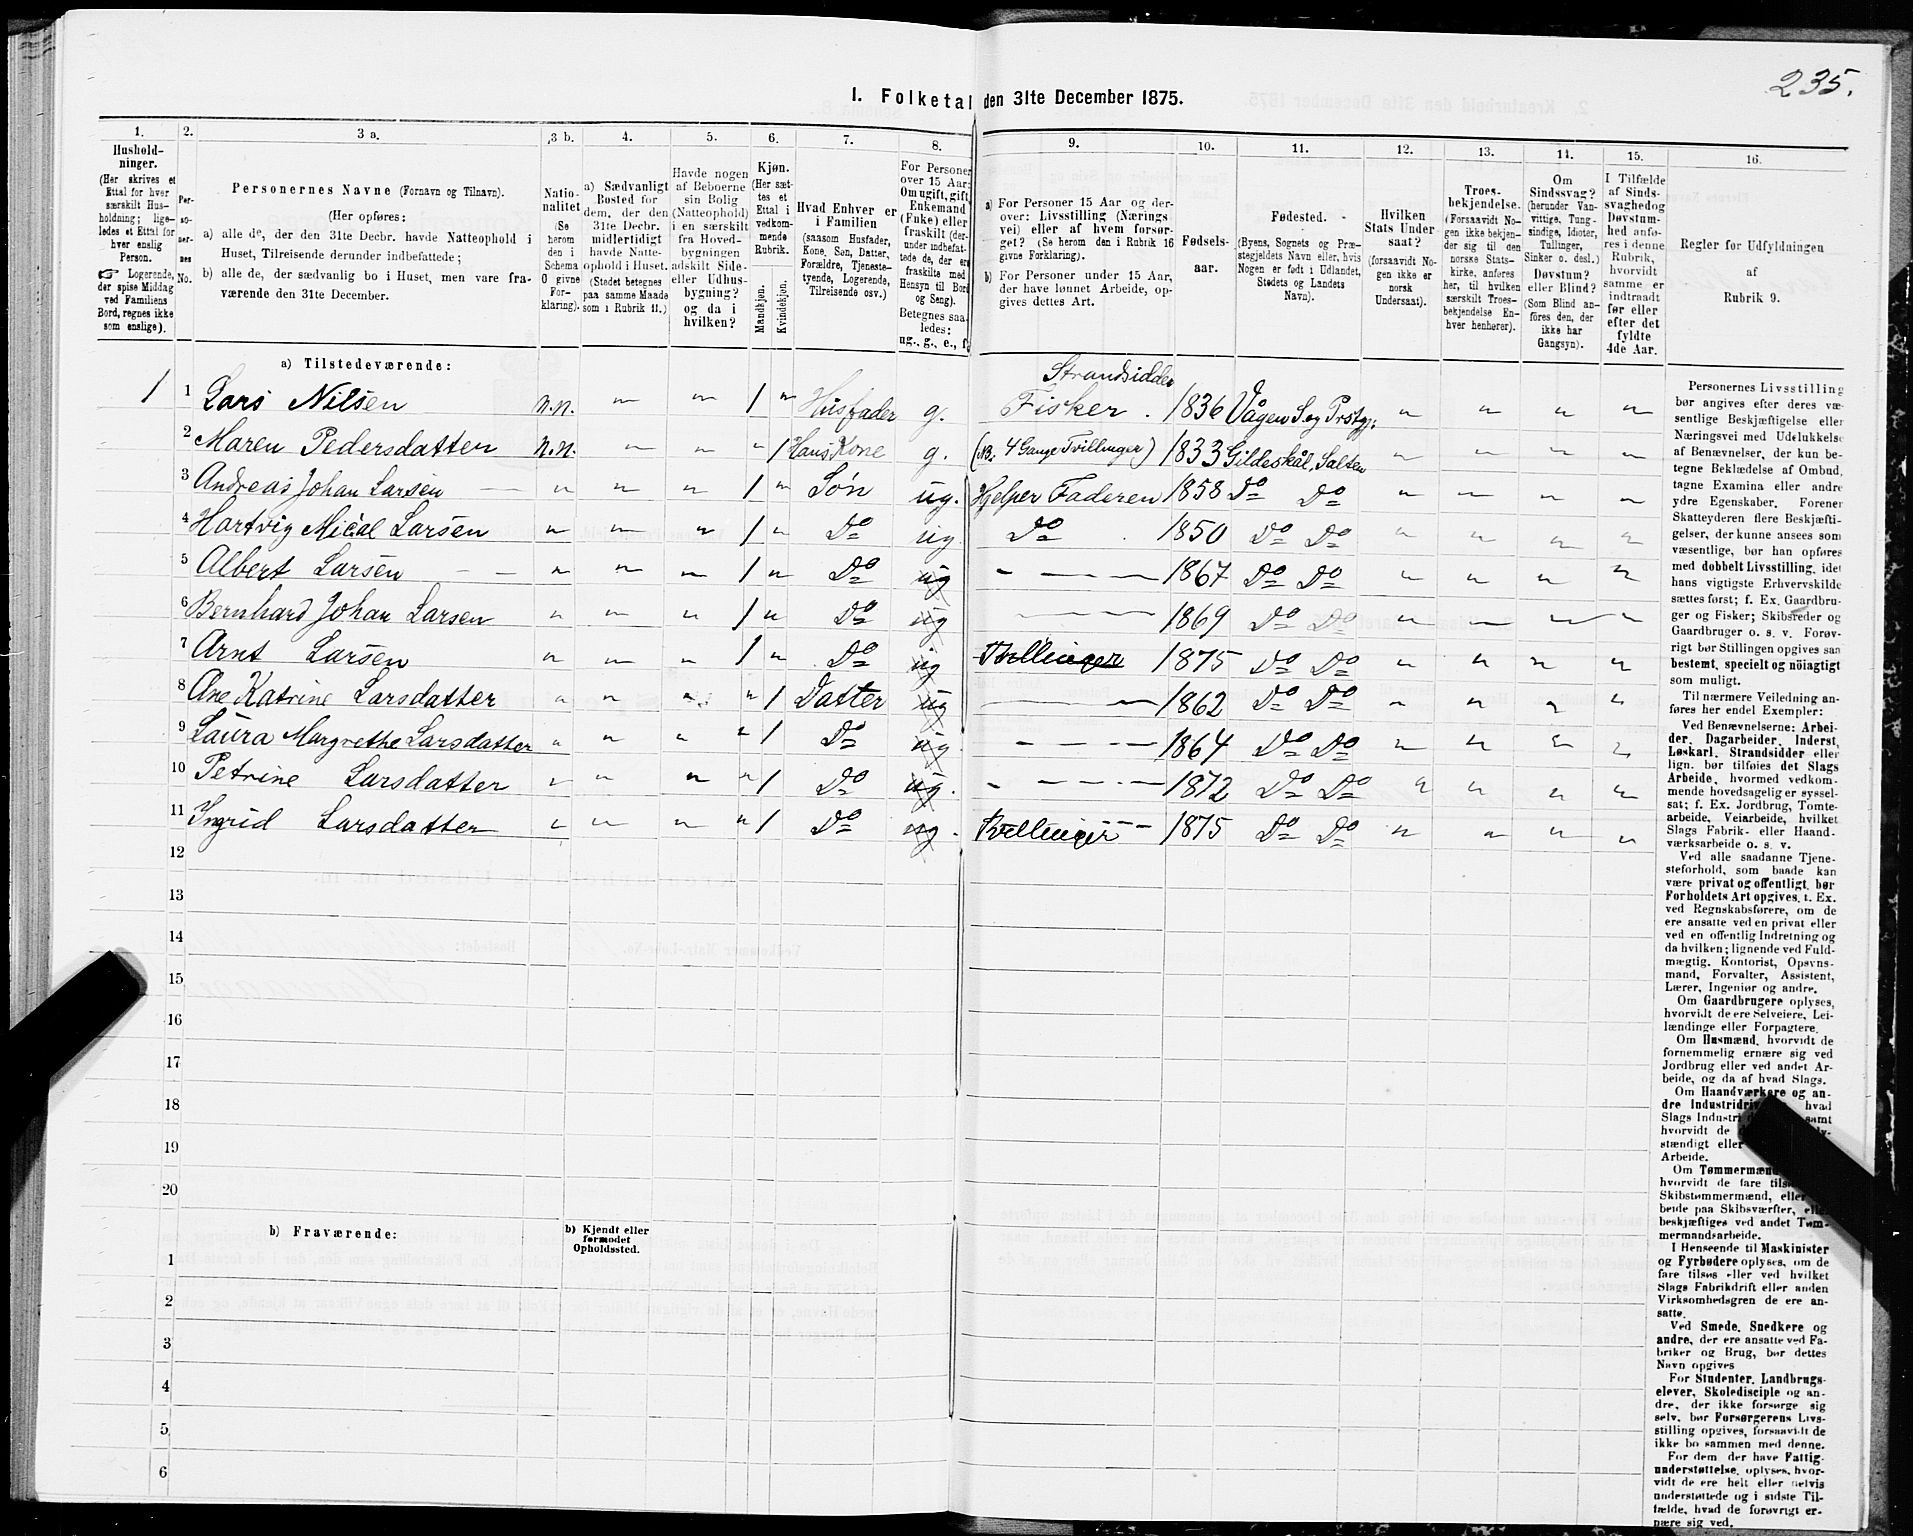 235.
I. Folketal den 31te December 1875.
1. 2. 3 a. 3 b. 4. 5. 6. 7. 8. 9. 10. 11. 12. 13. 14. 15. 16.
Hushold-
ninger.
(Her skrives et
Ettal for hver
særskilt Hus-
holdning; lige-
ledes et Ettal for
hver enslig
Person.
☞ Logerende,
der spise Middag
ved Familiens
Bord, regnes ikke
som enslige).
Per-
so-
ner-
nes
No.
Personernes Navne (Fornavn og Tilnavn).
(Her opføres:
a) alle de, der den 31te Decbr. havde Natteophold i
Huset, Tilreisende derunder indbefattede;
b) alle de, der sædvanlig bo i Huset, men vare fra-
værende den 31te December.
Natio-
nalitet
(Se
herom
den i
Schema
O givne
For-
klaring).
a) Sædvanligt
Bosted for
dem, der den
31te Decbr.
midlertidigt
havde Natte-
ophold i Huset.
(Stedet betegnes
paa samme Maade
som i Rubrik 11.)
Havde nogen
af Beboerne
sin Bolig
(Natteophold)
i en særskilt
fra Hoved-
bygningen
adskilt Side-
eller Udhus-
bygning?
og da i
hvilken?
Kjøn.
(Her sæt-
tes et
Ettal i
vedkom-
mende
Rubrik.
Mandkjøn.
Kvindekjøn.
Hvad Enhver er
i Familien
(saasom Husfader,
Kone, Søn, Datter,
Forældre, Tjeneste-
tyende, Logerende,
Tilreisende osv.)
For Personer
over 15 Aar:
Om ugift, gift,
Enkemand
(Enke) eller
fraskilt (der-
under indbefat-
tede de, der ere
fraskilte med
Hensyn til Bord
og Seng).
Betegnes saa-
ledes:
ug., g., e., f.
a) For Personer 15 Aar og der-
over: Livsstilling (Nærings-
vei) eller af hvem forsør-
get? (Se herom den i Rubrik 16
givne Forklaring).
b) For Personer under 15 Aar,
der have lønnet Arbeide, op-
gives dettes Art.
Fødsels-
aar.
Fødested.
(Byens, Sognets og Præ-
stegjeldets Navn eller, hvis
Nogen er født i Udlandet,
Stedets og Landets
Navn).
Hvilken
Stats Under-
saat?
(forsaavidt No-
gen ikke er
norsk
Undersaat).
Troes-
bekjendelse.
(Forsaavidt No-
gen ikke bekjen-
der sig til den
norske Stats-
kirke, anføres
her, til hvilken
særskilt Troes-
bekjendelse En-
hver henhører).
Om
Sindssvag?
(herunder Van-
vittige, Tung-
sindige, Idioter,
Tullinger,
Sinker o. desl.)
Døvstum?
eller Blind?
(Som Blind an-
føres den, der
ikke har
Gangsyn).
I Tilfælde
af Sinds-
svaghed og
Døvstum-
hed anfø-
res i denne
Rubrik,
hvorvidt
samme er
indtraadt
før eller
efter det
fyldte
4de Aar.
Regler før Udfyldningen
af
Rubrik 9.
a) Tilstedeværende:
Strandsidder
1 1 Lars Nilsen n.n. " " 1 " Husfader g. Fisker. 1836 Vågen S. og Prstgj. " " " "
2 Maren Pedersdatten n.n. " " " 1 Hans Kone g. (NB. 4 Gange Tvillinger) 1833 Gildeskål, Salten " " " "
3 Andreas Johan Larsen " " " 1 " Søn ug. Hjelper Faderen 1858 Do Do " " " "
4 Hartvig Mical Larsen " " " 1 " Do ug Do 1850 Do Do " " " "
5 Albert Larsen " " " 1 " Do ug — — — 1867 Do Do " " " "
6 Bernhard Johan Larsen " " " 1 " Do ug — — 1869 Do Do " " " "
7 Arnt Larsen " " " 1 " Do ug Tvillinger 1875 Do Do " " " "
8 Ane Katrine Larsdatter " " " " 1 Datter ug — — 1862 Do Do " " " "
9 Laura Margrethe Larsdatter " " " " 1 Do ug — — — 1864 Do Do " " " "
10 Petrine Larsdatter " " " " 1 Do ug. — — — 1872 Do Do " " " "
11 Ingrid Larsdatter " " " " 1 Do ug. Tvillinger 1875 Do Do " " " "
12
13
14
15
16
17
18
19
20
b) Fraværende:
b) Kjendt eller
formodet
Opholdssted.
1
2
3
4
5
6
Personernes Livsstilling
bør angives efter deres væ-
sentlige Beskjæftigelse eller
Næringsvei med Udelukkelse
af Benævnelser, der kun be-
tegne Beklædelse af Ombud,
tagne Examina eller andre
ydre Egenskaber. Forener
Skatteyderen flere Beskjæfti-
gelser, der kunne ansees som
væsentlige, bør han opføres
med dobbelt Livsstilling, idet
hans vigtigste Erhvervskilde
sættes først; f. Ex. Gaardbru-
ger og Fisker; Skibsreder og
Gaardbruger o. s. v. Forøv-
rigt bør Stillingen opgives saa
bestemt, specielt og nöiagtigt
som muligt.
Til nærmere Veiledning an-
føres her endel Exempler:
Ved Benævnelserne: Arbei-
der, Dagarbeider, Inderst,
Løskarl, Strandsidder eller
lign. bør tilføies det Slags
Arbeide, hvormed vedkom-
mende hovedsagelig er syssel-
sat; f. Ex. Jordbrug, Tomte-
arbeide, Veiarbeide, hvilket
Slags Fabrik- eller Haand-
værksarbeide o. s. v.
Ved alle saadanne Tjene-
steforhold, som baade kan
være privat og offentligt, bør
Forholdets Art opgives, t. Ex.
ved Regnskabsførere, om de
ere ansatte ved en privat eller
ved en offentlig Indretning og
da hvilken; lignende ved Fuld-
mægtig, Kontorist, Opsyns-
mand, Forvalter, Assistent,
Lærer, Ingeniør og andre.
Om Gaardbrugere oplyses,
hvorvidt de ere Selveiere, Lei-
lændinge eller Forpagtere.
Om Husmænd, hvorvidt de
fornemmelig ernære sig ved
Jordbrug eller ved andet Ar-
beide, og da af hvad Slags.
Om Haandværkere og an-
dre Industridri hvad
Slags Industri samt
hvorvidt de
stændigt eller
Arbeide.
Om Tømmermænd
hvorvidt de fare tils
Skibstømmermænd, eller
beide paa Skibsværfter,
beskjæftiges ved andet Tøm-
mermandsarbeide.
I Henseende til Maskinister
og Fyrbødere oplyses, om de
fare tilsøs eller ved hvilket
Slags Fabrikdrift eller anden
Virksomhedsgren de ere an-
satte.
Ved Smede, Snedkere og
andre, der ere ansatte ved Fa-
briker og Brug, bør dettes
Navn opgives
For Studenter, Landbrugs-
elever, Skoledisciple og an-
dre, der ikke forsørge sig
selv, bør Forsørgerens Livs-
stilling opgives, forsaavidt de
ikke bo sammen med denne.
For dem, der have Fattig-
understøttelse, oplyses, hvor-
vidt de ere helt eller delvis
understøttede og i sidste Til-
fælde, hvad de forøvrigt er-
nære sig ved.